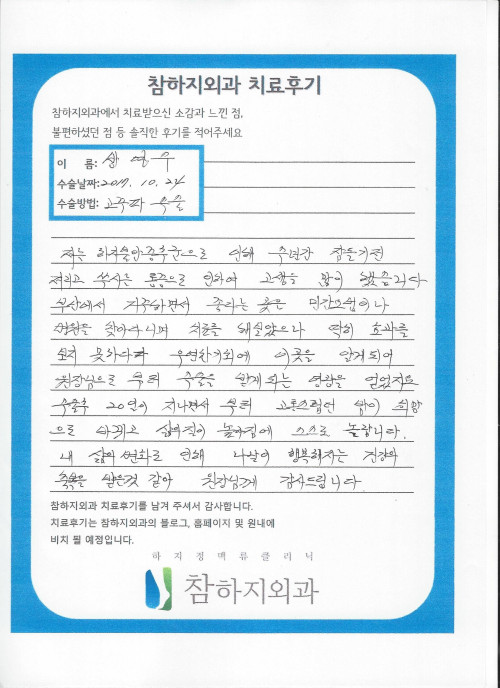 참하지외과 치료후기
참하지외과에서 치료받으신 소감과 느낀 점,
불편하셨던 점 등 솔직한 후기를 적어주세요
이 름:
수술날짜:2017. 10. 24
수술방법: 고주파 수술
저는 하지불안증후군으로 인해 수년간 잠들기전
저리고 쑤시는 통증으로 인하여 고생을 많이 했습니다
부산에서 거주하면서 좋다는 곳은 민간요법이나
병원을 찾아다니며 치료를 해보았으나 역히 효과를
보지 못하다가 우연한기회에 이곳을 알게되어
원장님으로 부터 수술을 받게 되는 영광을 얻었지요
수술후 20일이 지나면서 부터 고통스럽던 밤이 희망
으로 바뀌고 삶의질이 높아짐에 스스로 놀랍니다.
내 삶의 변화로 인해 나날이 행복해지는 건강의
축복을 받은것 같아 원장님께 감사드립니다.
참하지외과 치료후기를 남겨 주셔서 감사합니다.
치료후기는 참하지외과의 블로그, 홈페이지 및 원내에
비치 될 예정입니다.
하지정맥류클리닉
참하지외과